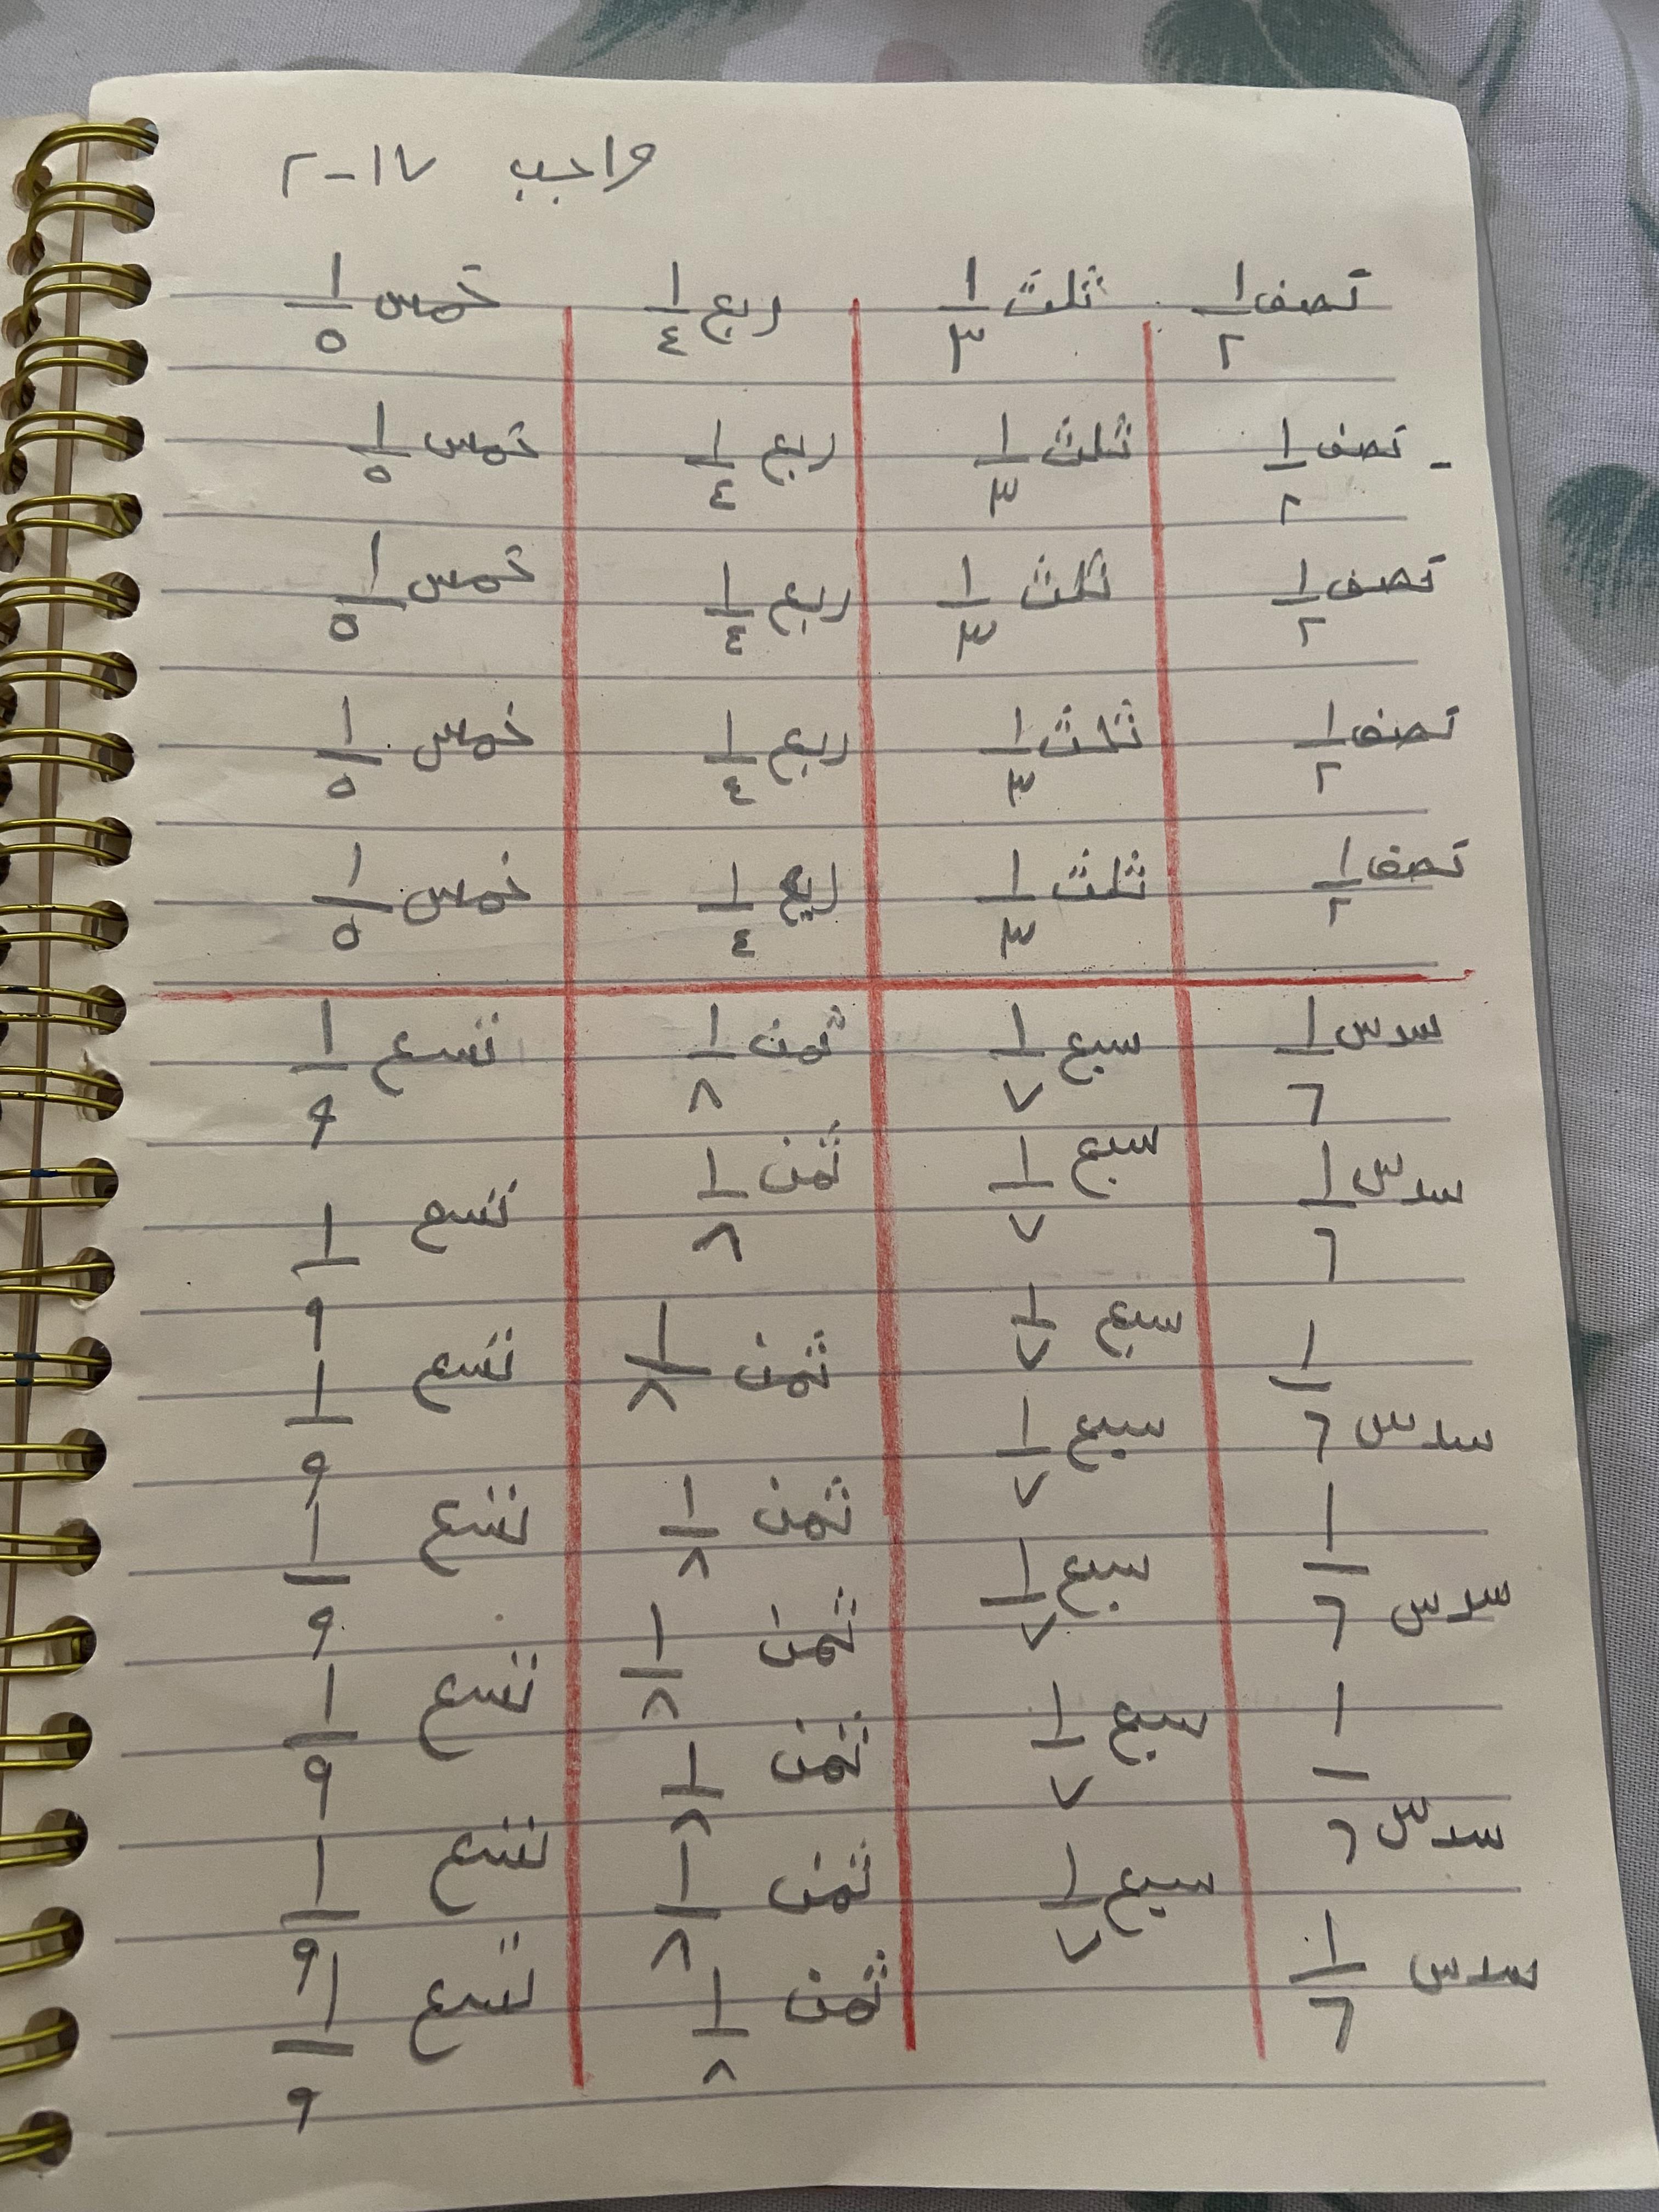 واجب ١٧-٢
نصف ١/٢ ثلث ١/٣ ربع ١/٤ خمس ١/٥
نصف ١/٢ ثلث ١/٣ ربع ١/٤ خمس ١/٥
نصف ١/٢ ثلث ١/٣ ربع ١/٤ خمس ١/٥
نصف ١/٢ ثلث ١/٣ ربع ١/٤ خمس ١/٥
نصف ١/٢ ثلث ١/٣ ربع ١/٤ خمس ١/٥
سدس ١/٦ سبع ١/٧ ثمن ١/٨ تسع ١/٩
سدس ١/٦ سبع ١/٧ ثمن ١/٨ تسع ١/٩
سدس ١/٦ سبع ١/٧ ثمن ١/٨ تسع ١/٩
سدس ١/٦ سبع ١/٧ ثمن ١/٨ تسع ١/٩
سدس ١/٦ سبع ١/٧ ثمن ١/٨ تسع ١/٩
سدس ١/٦ سبع ١/٧ ثمن ١/٨ تسع ١/٩
سبع ١/٧ ثمن ١/٨ تسع ١/٩
ثمن ١/٨